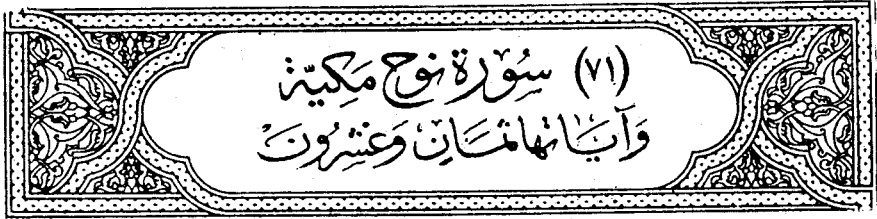 (٧١) سُوۡرَةُ نوُحٍ مَكِيّة
وَآيَاتهَا ثمَانِ وَعشِرُونَ